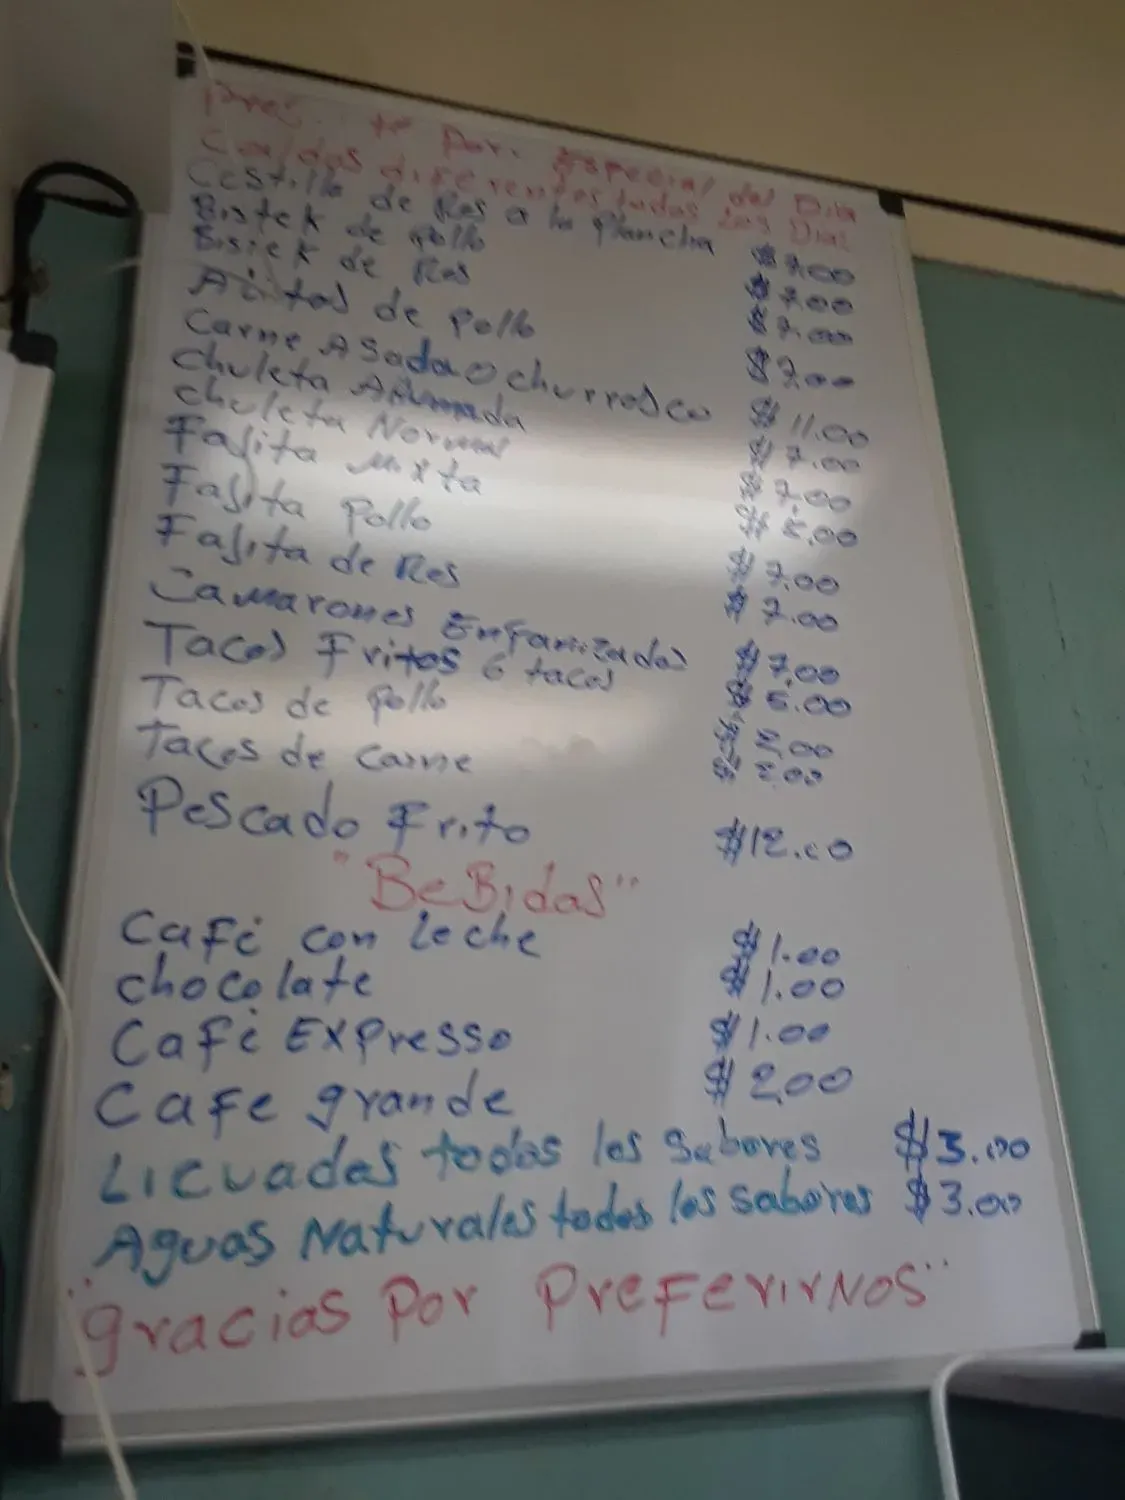 te Por. Especial del Dia
Caldos diferentes todos Los Dias
Costilla de Res a la Plancha $7.00
Bistek de Pollo $7.00
Bistek de Res $7.00
Alitas de Pollo $7.00
Carne Asada o churrasco $11.00
Chuleta Ahumada $7.00
Chuleta Normal $7.00
Fajita Mixta
Fajita Pollo $7.00
Fajita de Res $7.00
Camarones $7.00
Tacos Fritos 6 tacos
Tacos de Pollo
Tacos de Carne
Pescado Frito $12.00
"BeBidas"
Café con leche $1.00
chocolate $1.00
Café Expresso $1.00
Cafe grande $2.00
Licuados todos los Sabores $3.00
Aguas Naturales todos los sabores $3.00
"gracias Por PreferirNos"